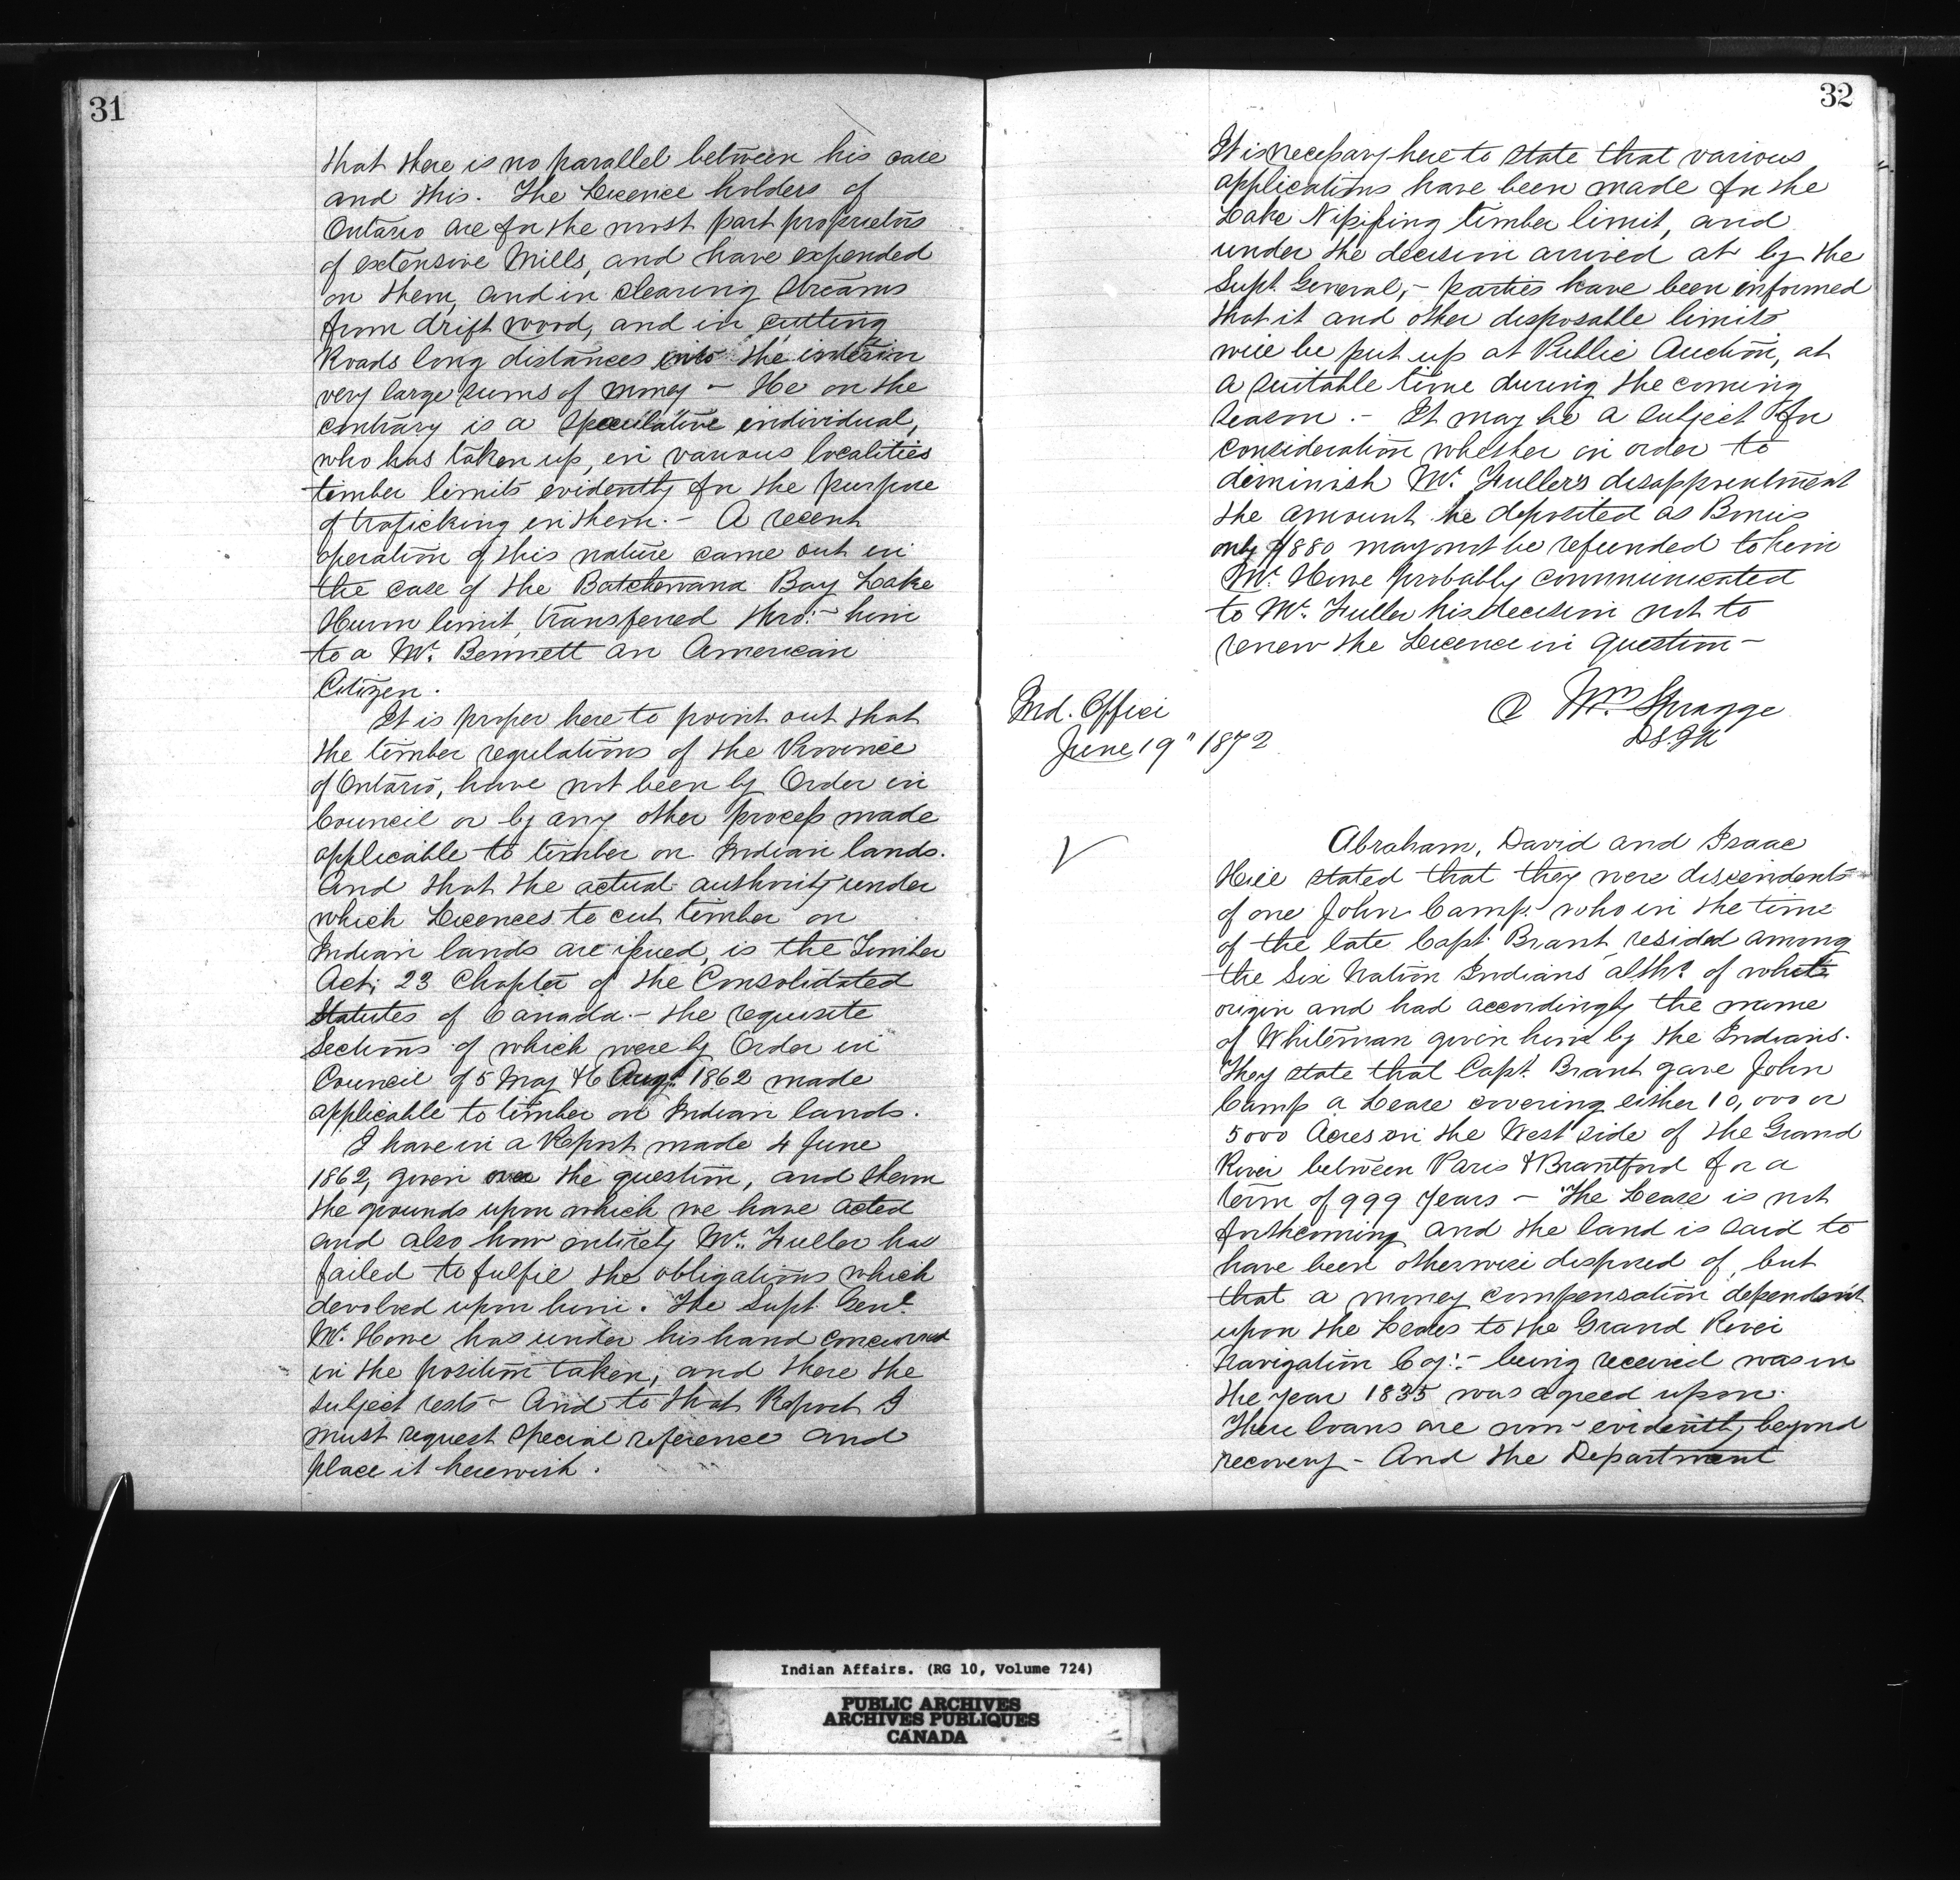 31
that there is no parallel between his case
and this. The Licence holders of
Ontario are for the most part proprietors
of extensive Mills, and have expended
on them, and in clearing Streams
from drift wood, and in cutting
Roads long distances into the interior
very large sums of money - He on the
contrary is a Speculative individual,
who has taken up, in various localities
timber limits evidently for the purpose
of traficking in them. - A recent
operation of this nature came out in
the case of the Batchewana Bay Lake
Huron limit, transferred thro: him
to a Mr. Bennett an American
Citizen.
It is proper here to point out that
the timber regulations of the Province
of Ontario, have not been by Order in
Council or by any other process made
applicable to timber on Indian lands.
And that the actual authority under
which Licences to cut timber on
Indian lands are issued, is the Timber
Act; 23 Chapter of the Consolidated
Statutes of Canada - the requisite
Sections of which were by Order in
Council of 5 May & 6 Augt. 1862 made
applicable to timber on Indian lands.
I have in a Report made 4 June
1862, given over the question, and shewn
the grounds upon which we have acted
and also how entirely Mr. Fuller has
failed to fulfil the obligations which
devolved upon him. The Supt. Genl.
Mr. Howe has under his hand concurred
in the position taken, and there the
subject rests - And to that Report I
must request special reference and
place it herewith.
32
It is necessary here to state that various
applications have been made for the
Lake Nipissing timber limit, and
under the decision arrived at by the
Supt. General, - parties have been informed
that it and other disposable limits
will be put up at Public Auction, at
a suitable time during the coming
season. - It may be a subject for
consideration whether in order to
diminish Mr. Fuller's disappointment
the amount he deposited as Bonus
only $880 may not be refunded to him
Mr. Howe probably communicated
to Mr. Fuller his decision not to
renew the Licence in question -
Wm. Spragge
D.S.I.A
Ind. Office
June 19" 1872
Abraham, David and Isaac
Hill stated that they were discendents
of one John Camp who in the time
of the late Capt. Brant resided among
the Six Nation Indians altho. of white
origin and had accordingly the name
of Whiteman given him by the Indians.
They state that Capt. Brant gave John
Camp a Lease covering either 10,000 or
5000 Acres on the West side of the Grand
River between Paris & Brantford for a
term of 999 Years - The Lease is not
forthcoming and the land is said to
have been otherwise disposed of, but
that a money compensation dependent
upon the Loans to the Grand River
Navigation Coy: - being received was in
the year 1835 was agreed upon.
These loans are now evidently beyond
recovery - And the Department
Indian Affairs. (RG 10, Volume 724)
PUBLIC ARCHIVES
ARCHIVES PUBLIQUES
CANADA